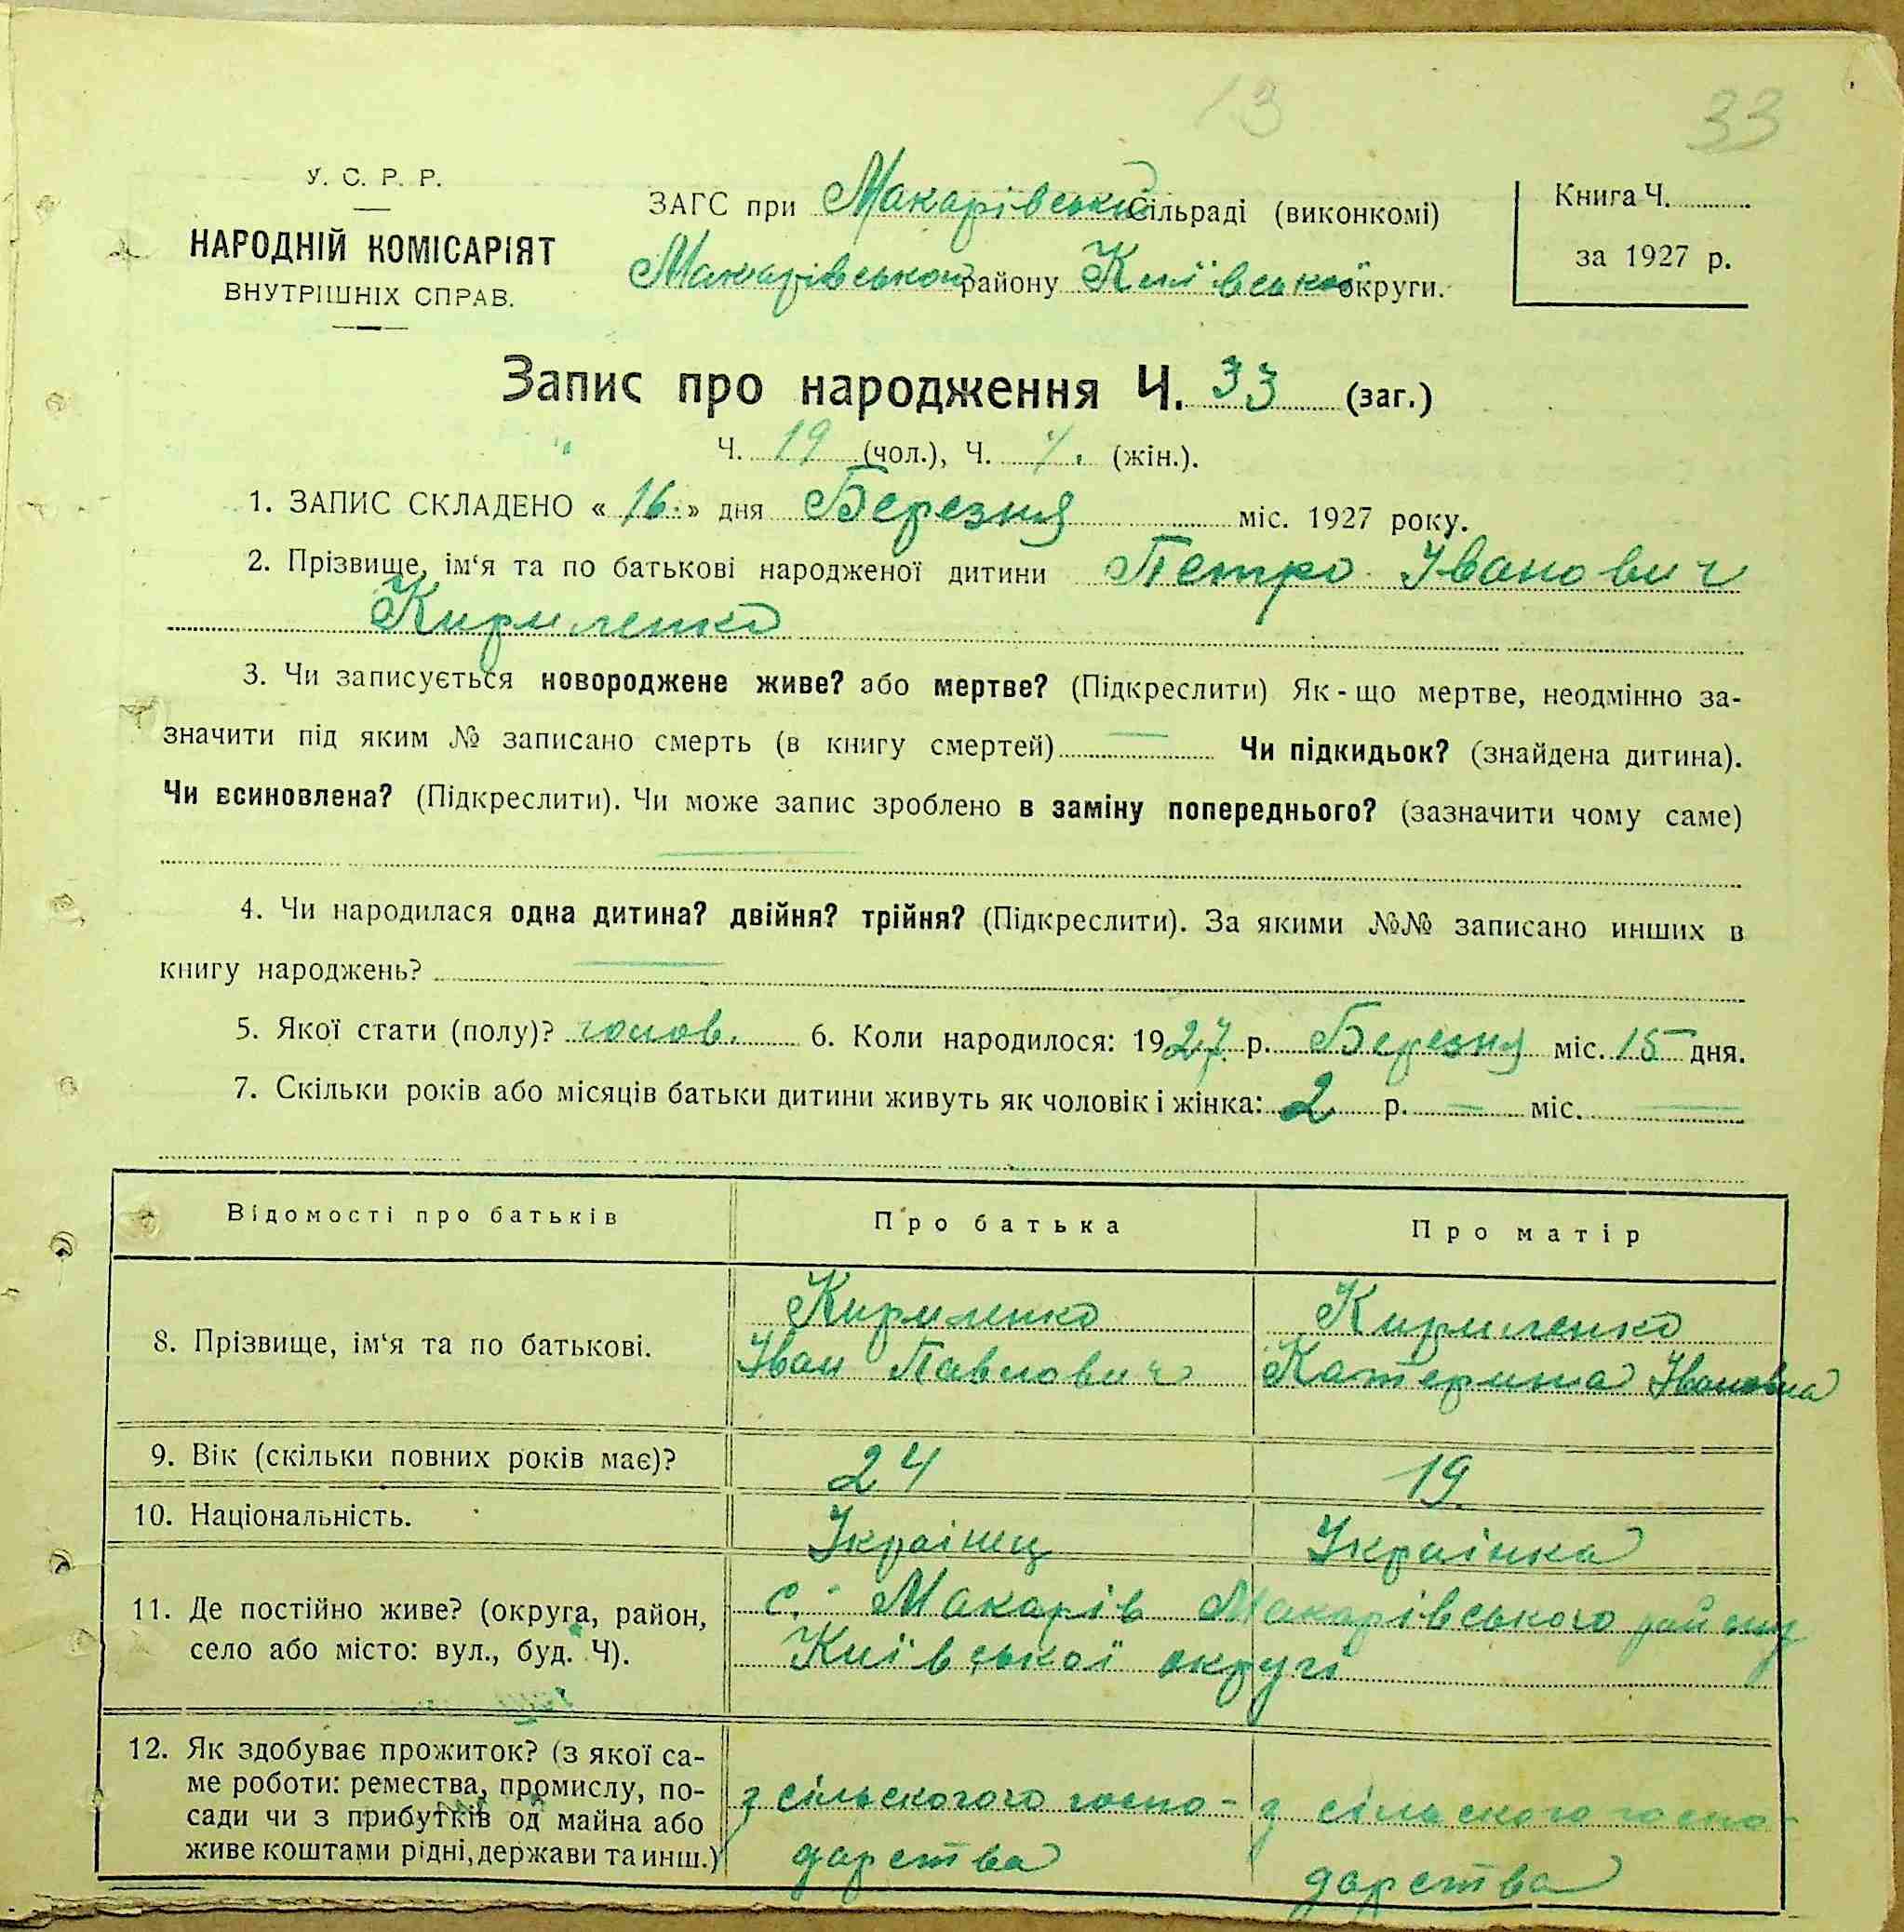 13
33
У. С. Р. Р.
НАРОДНІЙ КОМІСАРІЯТ
ВНУТРІШНІХ СПРАВ.
ЗАГС при Макарівській Сільраді (виконкомі)
Макарівського району Київської округи.
Книга Ч.
за 1927 р.
Запис про народження Ч. 33 (заг.)
Ч. 19 (чол.), Ч. (жін.).
1. ЗАПИС СКЛАДЕНО « 16 » дня Березня міс. 1927 року.
2. Прізвище, ім‘я та по батькові народженої дитини Петро Іванович
Кириленко
3. Чи записується новороджене живе? або мертве? (Підкреслити) Як-що мертве, неодмінно за-
значити під яким № записано смерть (в книгу смертей) — Чи підкидьок? (знайдена дитина).
Чи всиновлена? (Підкреслити). Чи може запис зроблено в заміну попереднього? (зазначити чому саме)
—
4. Чи народилася одна дитина? двійня? трійня? (Підкреслити). За якими №№ записано инших в
книгу народжень? —
5. Якої стати (полу)? чолов. 6. Коли народилося: 1927 р. Березня міс. 15 дня.
7. Скільки років або місяців батьки дитини живуть як чоловік і жінка: 2 р. — міс. —
Відомості про батьків Про батька Про матір
Кириленко Кириленко
8. Прізвище, ім‘я та по батькові. Іван Павлович Катерина Івановна
9. Вік (скільки повних років має)? 24 19
10. Національність. Українец Українка
11. Де постійно живе? (округа, район, с. Макарів Макарівського району
село або місто: вул., буд. Ч). Київської округи
12. Як здобуває прожиток? (з якої са-
ме роботи: ремества, промислу, по- з сільскогого госпо- з сільского госпо-
сади чи з прибутків од майна або
живе коштами рідні, держави та инш.) дарства дарства